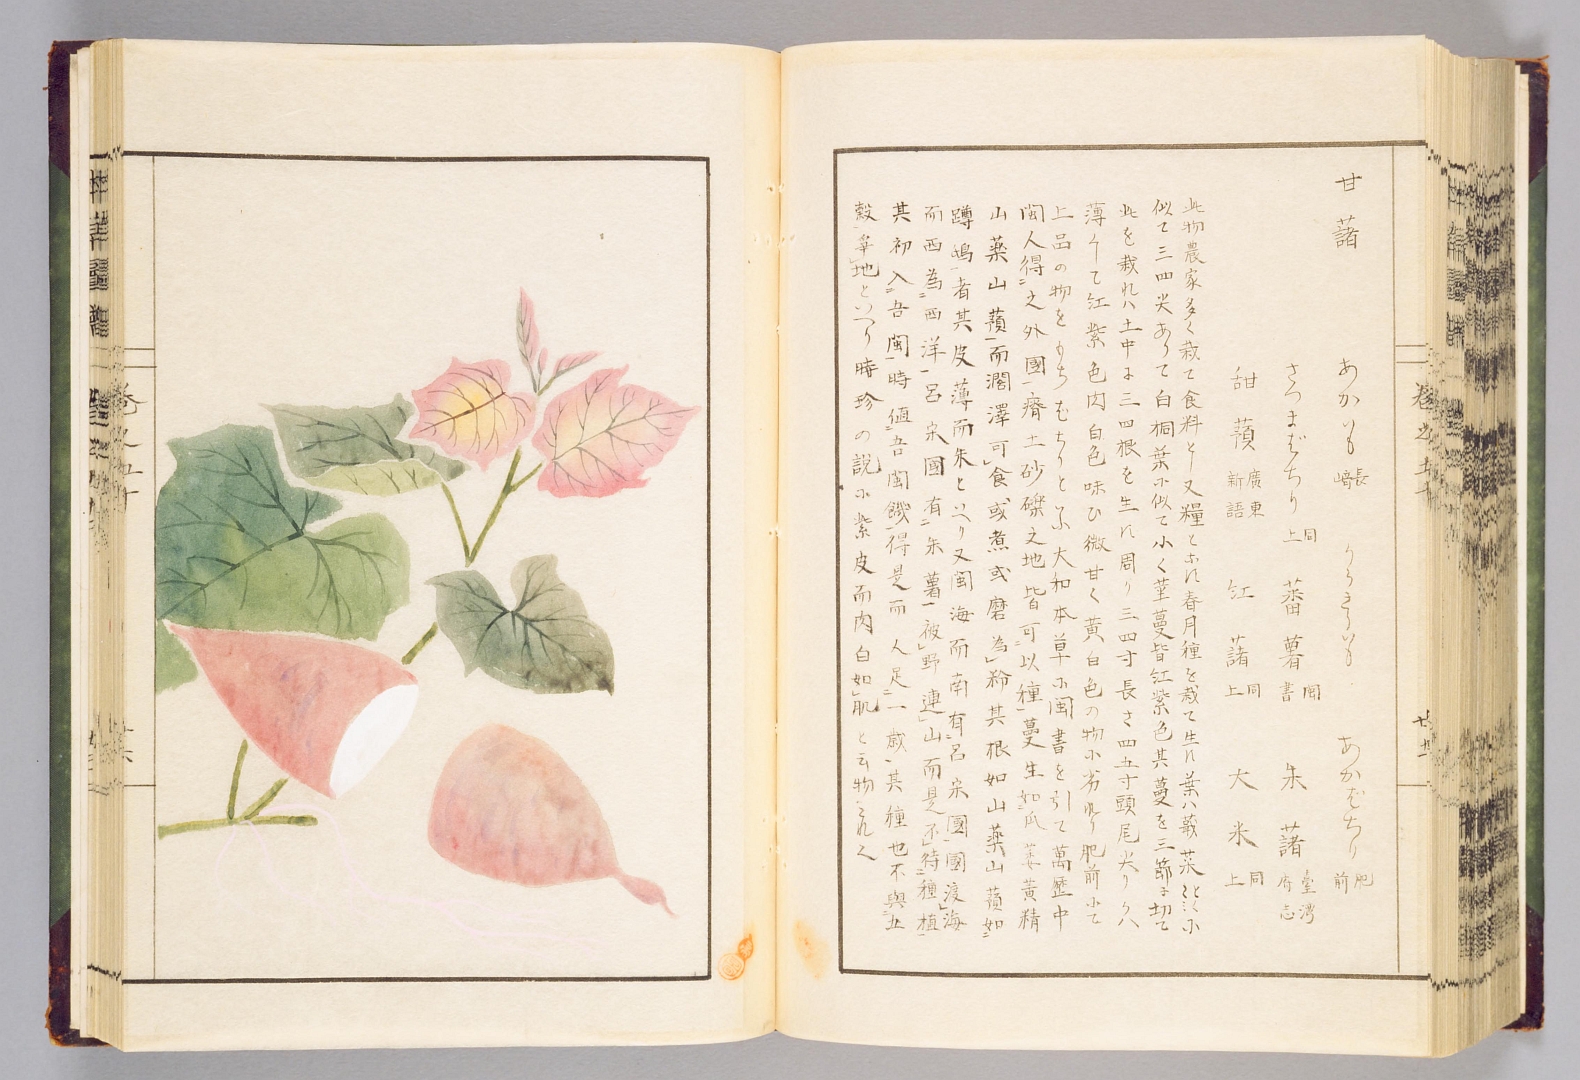 甘藷
あかいも 長崎 りうきういも あかばちり 肥前
さつまばちり 同上 蕃薯 閩書 朱藷 臺灣府志
甜蕷 廣東新語 紅藷 同上 大米 同上
此物農家多く栽て食料とし又糧とす春月種を栽て生れ葉ハ蕺菜に
似て三四尖ありて白桐葉に似て小く莖蔓皆紅紫色其蔓を三節に切て
此を栽れハ土中に三四根を生れ周り三四寸長さ四五寸頭尾尖り
薄くして紅紫色肉白色味ひ微甘く黄白色の物に劣れり肥前にて
上品の物をもちばちりと云大和本草に閩書を引て萬歷中
閩人得之外國瘠土砂礫之地皆可以種蔓生如瓜蔞黄精
山藥山蕷而濶澤可食或煮或磨為粉其根如山藥山蕷如
蹲鴟者其皮薄而朱といへり又閩海而南有呂宋國國渡海
而西為西洋呂宋國有朱薯被野連山而是不待種植
其初入吾閩時値吾閩饑得是而人足一歳其種也不與五
穀爭地といへり時珍の説に紫皮而肉白如肌と云物これ
卷之五十
卷之五十